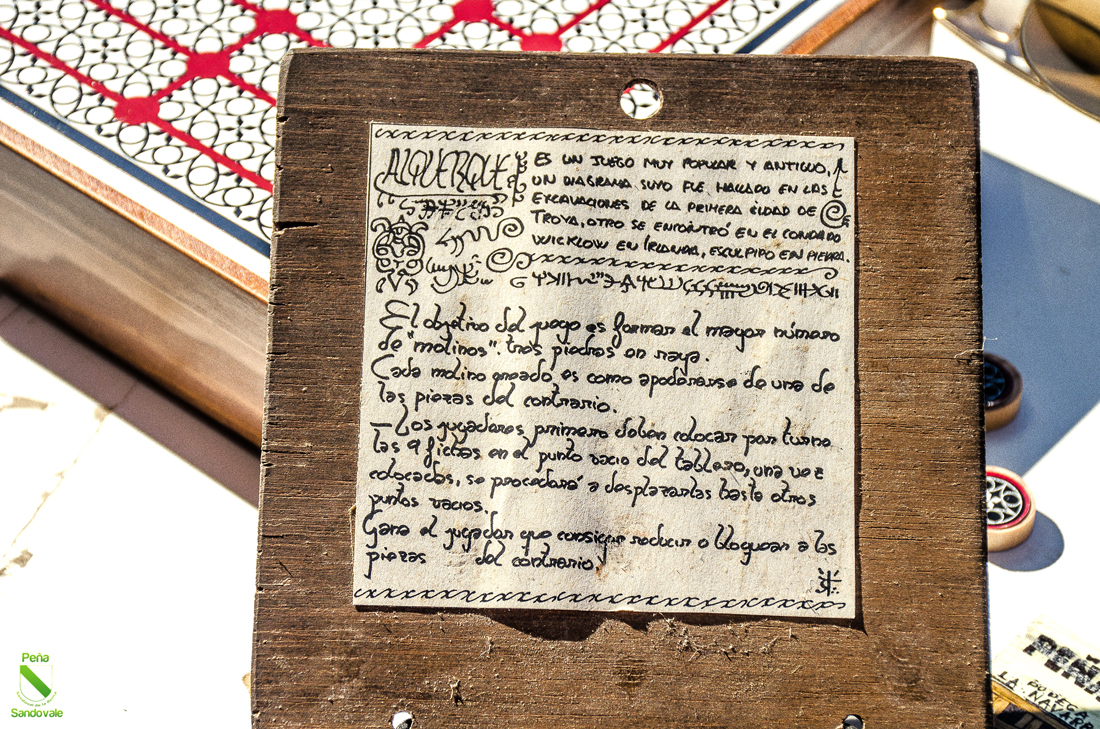 ALQUERQUE
ES UN JUEGO MUY POPULAR Y ANTIGUO,
UN DIAGRAMA SUYO FUE HALLADO EN LAS
EXCAVACIONES DE LA PRIMERA CIDAD DE
TROYA, OTRO SE ENCONTRÓ EN EL CONDADO DE
WICKLOW EN IRLANDA, ESCULPIDO EN PIEDRA.
El objetivo del juego es formar el mayor número
de "molinos". tres piedras en raya.
Cada molino creado, es como apoderarse de una de
las piezas del contrario.
- Los jugadores primero deben colocar por turno
las 9 fichas en el punto vacio del tablero, una vez
colocadas, se procederá a desplazarlas hasta otros
puntos vacios.
Gana el jugador que consigue reducir o bloquear a las
piezas del contrario.
BODEGA
LA NAVARR
Peña
Sandovale